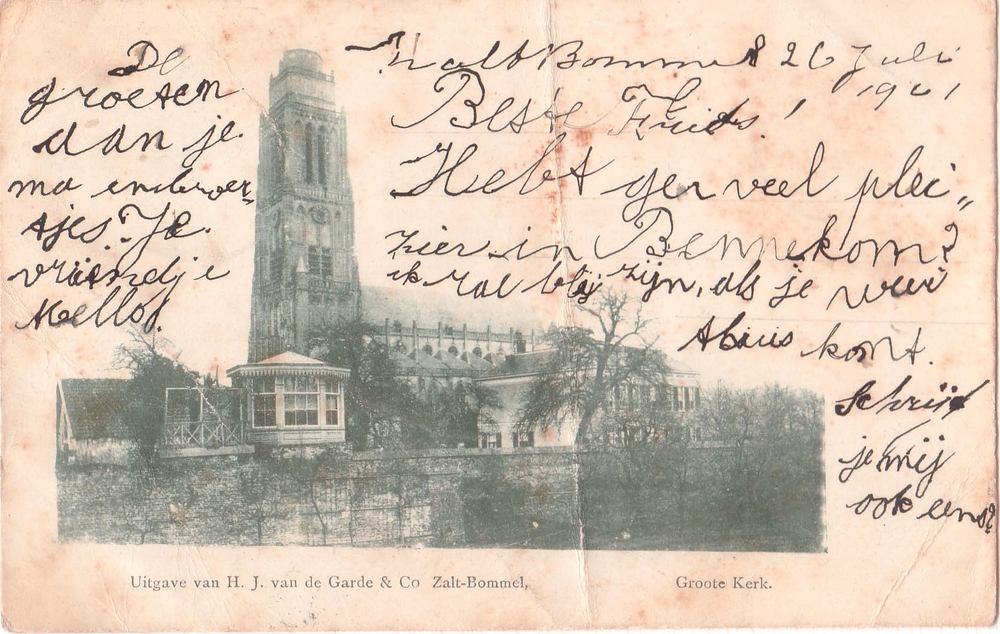 ZaltBommel 26 Juli
1901
Beste Frits!
Hebt ge er veel plei„
zier in Bennekom?
ik zal blij zijn, als je weer
thuis komt.
Schrijf
je mij
ook eens?
De
groeten
aan je
ma en broer„
tjes. Je
vriendje
Uitgave van H. J. van de Garde & Co Zalt-Bommel,
Groote Kerk.